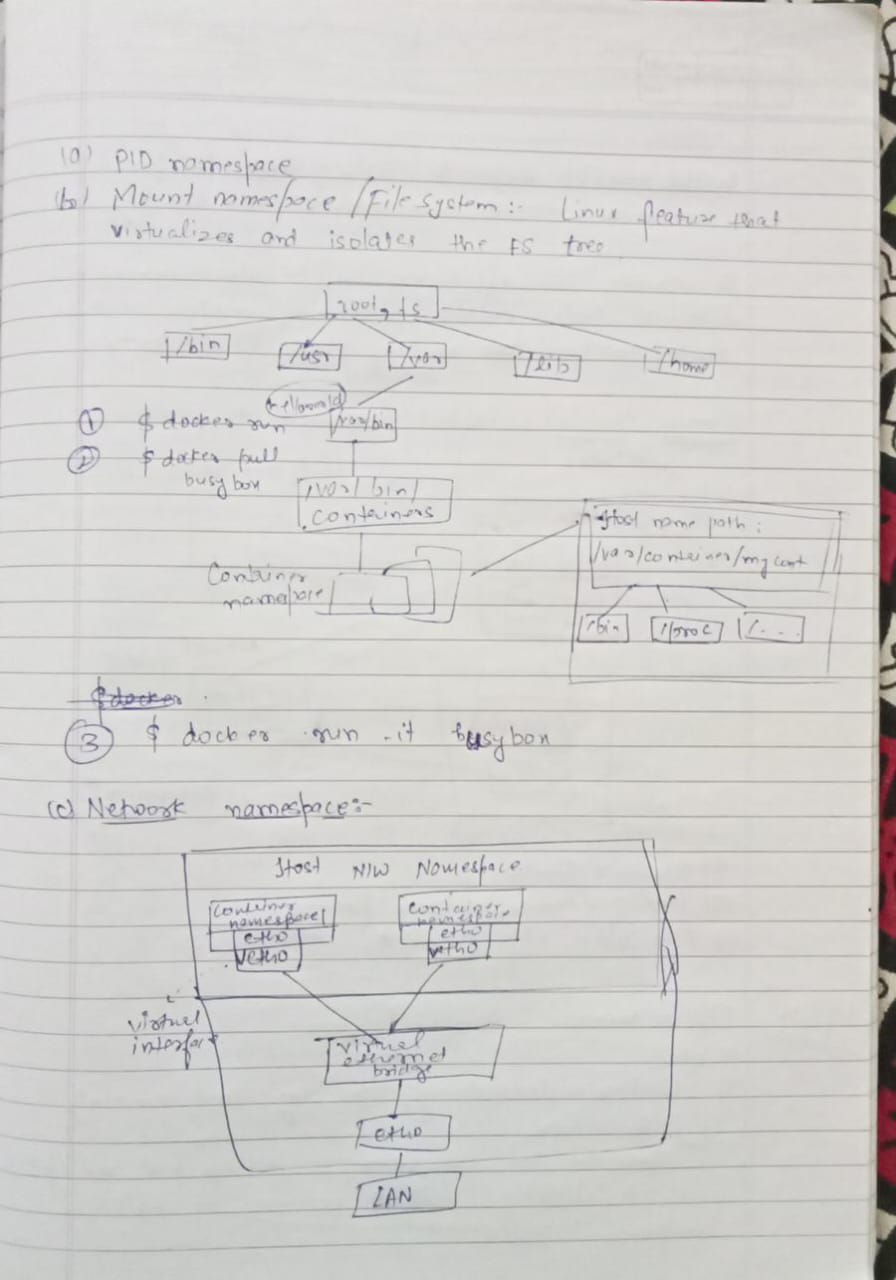 (a) PID namespace
(b) Mount namespace / File system :- Linux feature that
virtualizes and isolates the FS tree
root, fs
/bin
/usr
/var
/lib
/home
① $ docker run
helloworld
/var/bin
② $ docker pull
busybox
/var/bin/
containers
Host name path :
/var/container/mycont
Container
namespace
/bin
/proc
/. . . .
$ docker
③ $ docker run -it busybox
(c) Network namespace :-
Host N/W Namespace
container
namespace
eth0
veth0
container
namespace
eth0
veth0
virtual
interface
virtual
ethernet
bridge
eth0
LAN